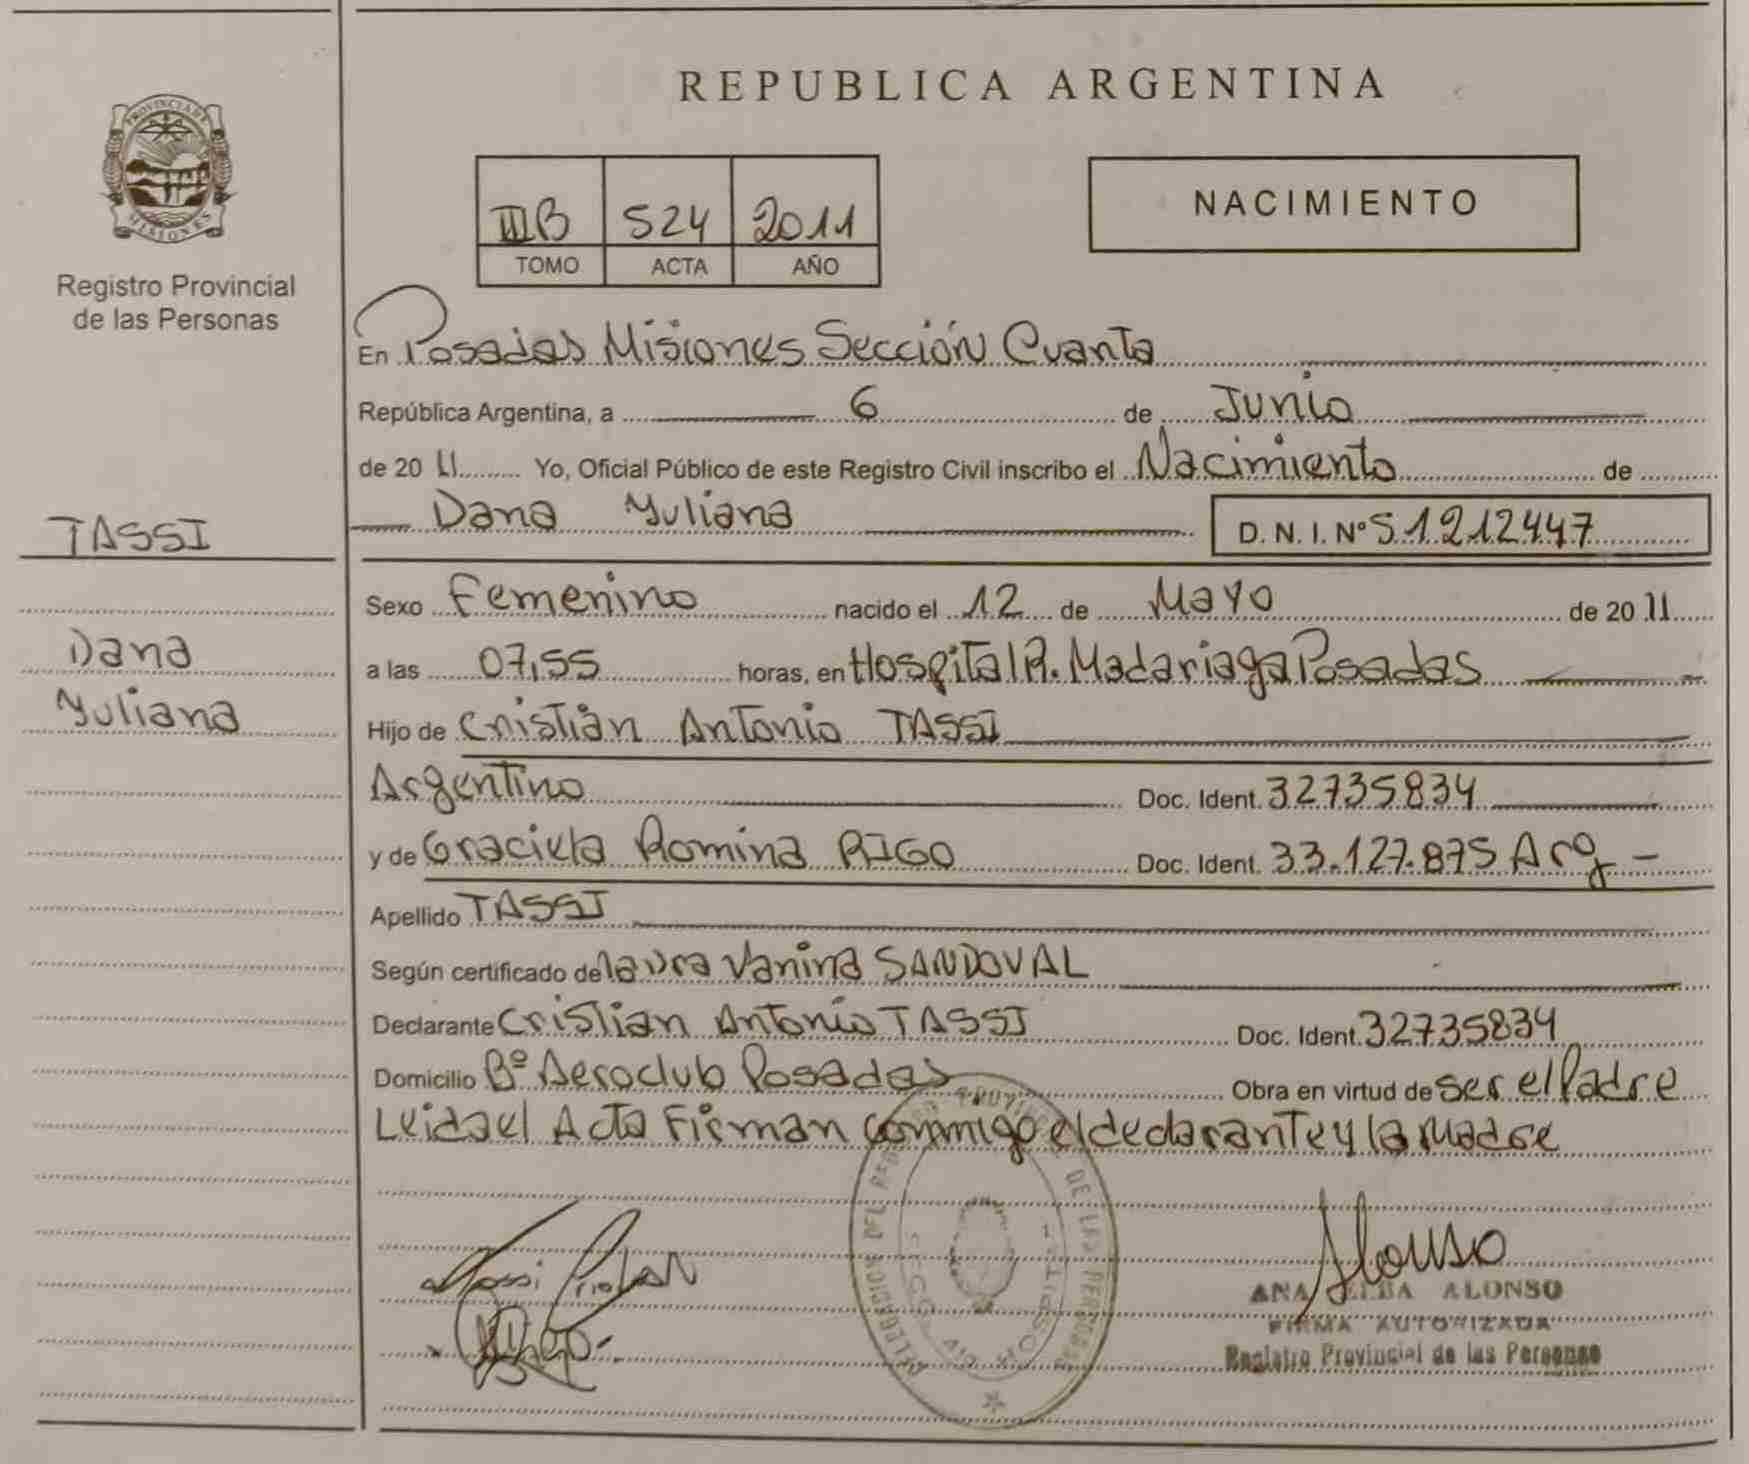 PROVINCIA DE
MISIONES
Registro Provincial
de las Personas
TASSI
Dana
Yuliana
REPUBLICA ARGENTINA
III B 524 2011
TOMO ACTA AÑO
NACIMIENTO
En Posadas Misiones Sección Cuarta
República Argentina, a 6 de Junio
de 20 11 Yo, Oficial Público de este Registro Civil inscribo el Nacimiento de
Dana Yuliana D. N. I. Nº 51212447
Sexo Femenino nacido el 12 de Mayo de 20 11
a las 07,55 horas, en Hospital R. Madariaga Posadas
Hijo de Cristian Antonio TASSI
Argentino Doc. Ident. 32735834
y de Graciela Romina RIGO Doc. Ident. 33.127.875 Arg -
Apellido TASSI
Según certificado de laura Vanina SANDOVAL
Declarante Cristian Antonio TASSI Doc. Ident. 32735834
Domicilio Bº Aeroclub Posadas Obra en virtud de ser el Padre
Leida el Acta Firman conmigo el declarante y la Madre
Tassi Cristian
Alonso
ANA ELBA ALONSO
FIRMA AUTORIZADA
Registro Provincial de las Personas
DELEGACION DEL REGISTRO PROVINCIAL DE LAS PERSONAS